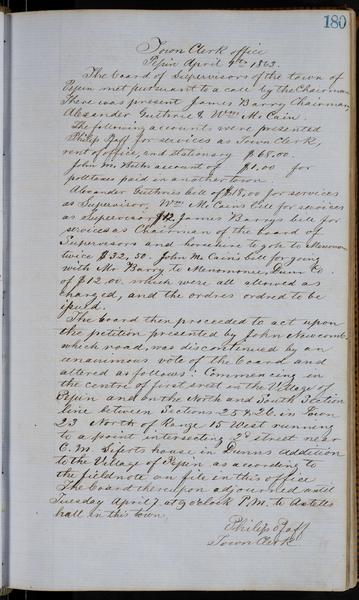 180
Town Clerk office
Pepin April 4th 1863.
The board of Supervisors of the town of
Pepin met pursuant to a call by the Chairman
There was present James Barry Chairman,
Alexander Guthrie & Wm McCain.
The following accounts were presented
Philip Pfaff for services as Town Clerk,
rent of office, and stationary $65.00.
John M. account of $1.00 for
polltaxes paid in another town.
Alexander Guthries bill of $18,00 for services
as Supervisor, Wm McCains bill for services
as Supervisor $12. James Barrys bill for
services as Chairman of the board of
Supervisors and horsehire to go to Menomon
twice $32,50. John McCains bill for going
with Mr Barry to Menomonie, Dunn Co.
of $12.00. which were all allowed as
charged, and the orders ordred to be
ipued.
The board then proceeded to act upon
the petition presented by John Newcomb.
which road, was discontinued by an
unanimous vote of the board and
altered as follows: Commencing in
the centre of first street in the Village of
Pepin and on the North and South Section
line between Sections 25 & 26. in Town
23 North of Range 15 West running
to a point intersecting 2d street near
C. M. house in Dunns addition
to the Village of Pepin as according to
the fieldnote on file in this office
The board thereupon adjourned until
Tuesday April 7, at 9 oclock P.M. to
hall in this town.
Philip Pfaff
Town Clerk